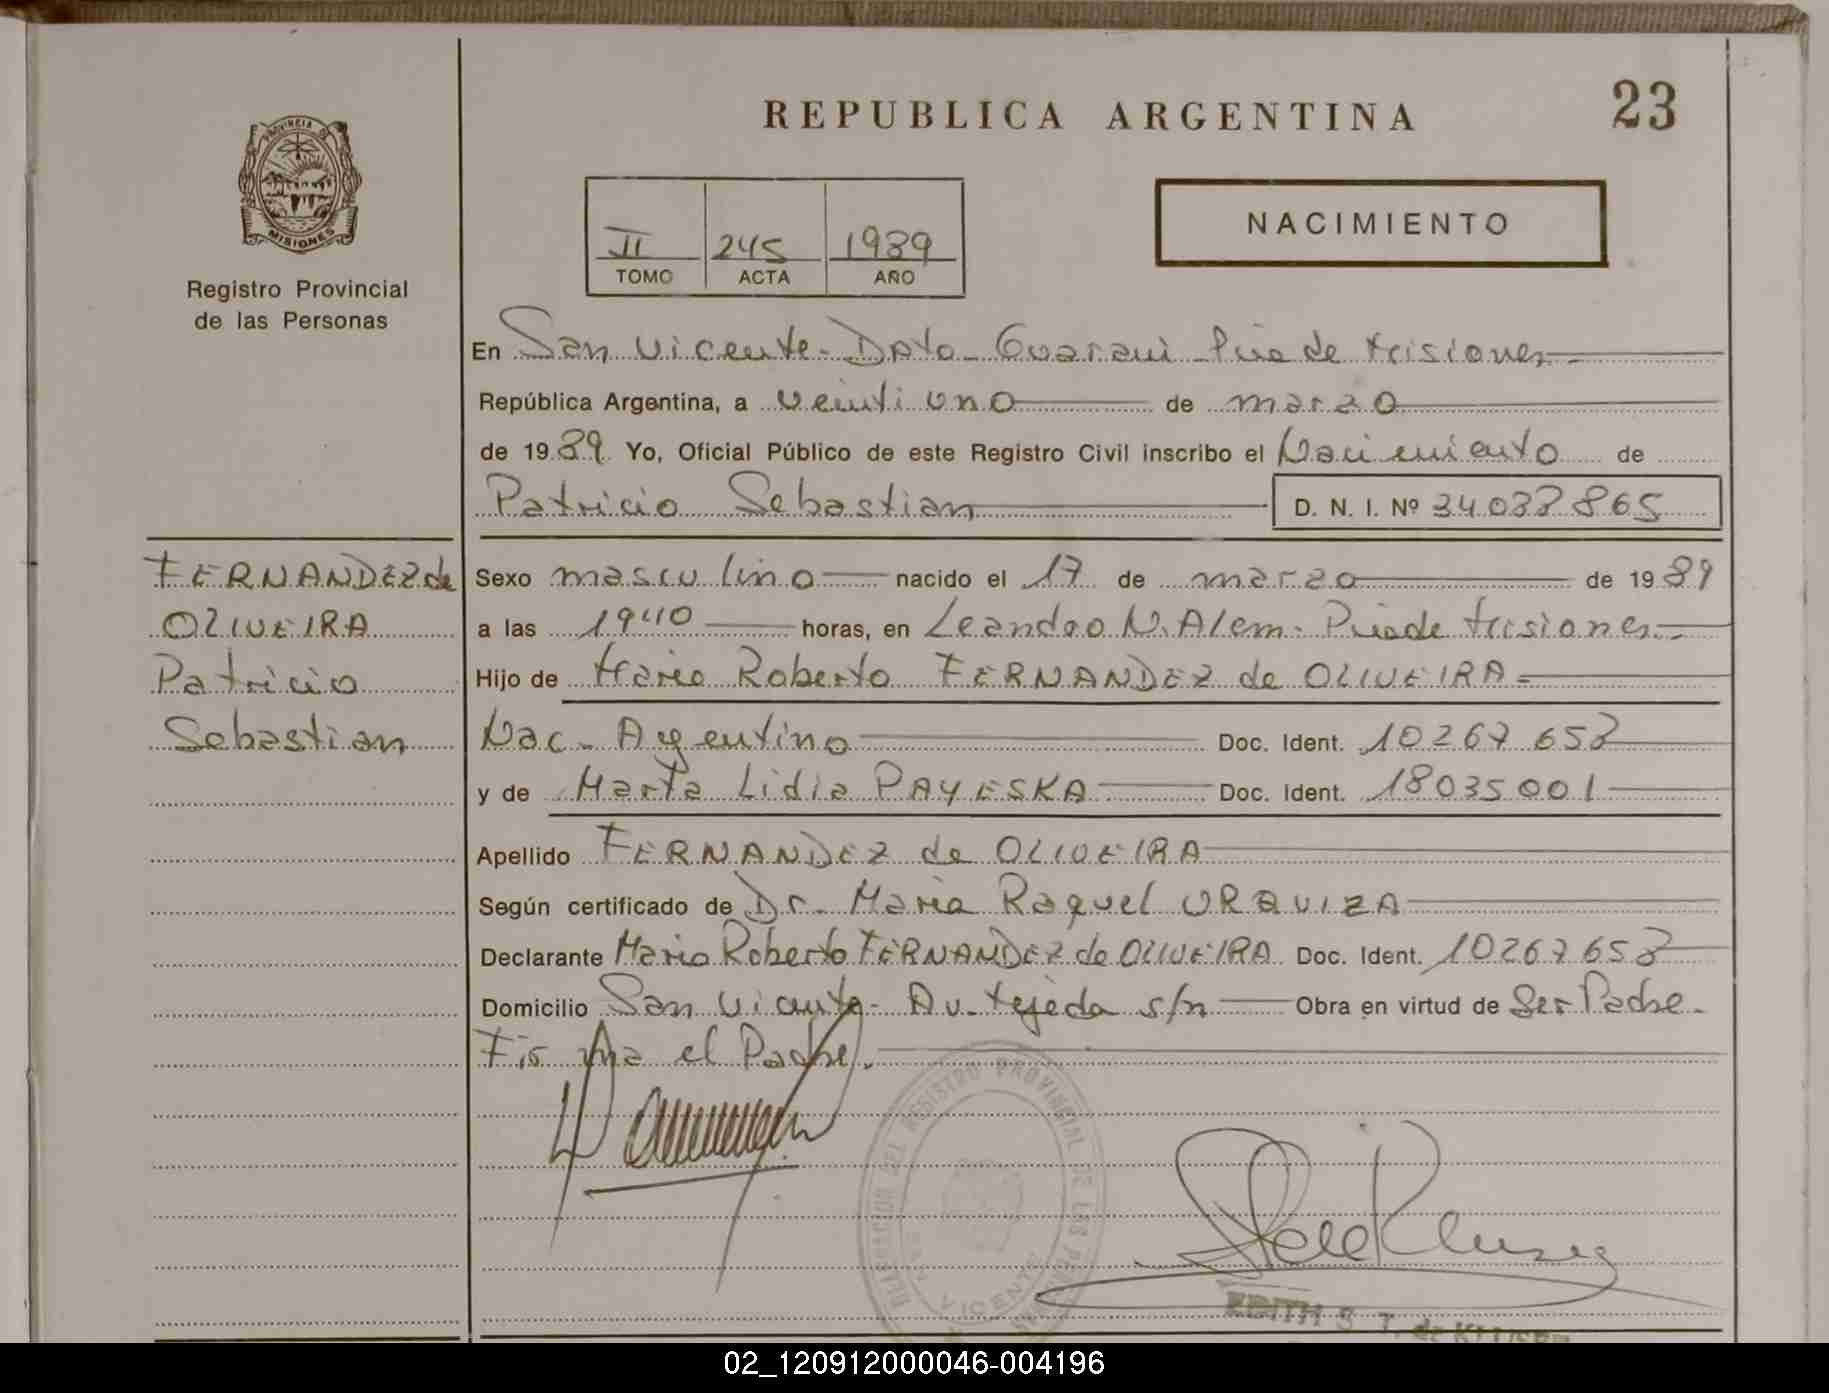 REPUBLICA ARGENTINA
23
PROVINCIA DE
MISIONES
Registro Provincial
de las Personas
II 245 1989
TOMO ACTA AÑO
NACIMIENTO
En San Vicente - Dpto - Guaraní - Pcia de Misiones -
República Argentina, a veintiuno de marzo
de 1989 Yo, Oficial Público de este Registro Civil inscribo el Nacimiento de
Patricio Sebastian D. N. I. Nº 34038865
FERNANDEZ de
OLIVEIRA
Patricio
Sebastian
Sexo masculino nacido el 17 de marzo de 1989
a las 19 40 horas, en Leandro N. Alem - Pcia de Misiones -
Hijo de Mario Roberto FERNANDEZ de OLIVEIRA -
Nac - Argentino Doc. Ident. 10267653
y de Marta Lidia PAYESKA Doc. Ident. 18035001
Apellido FERNANDEZ de OLIVEIRA
Según certificado de Dr. Maria Raquel URQUIZA
Declarante Mario Roberto FERNANDEZ de OLIVEIRA Doc. Ident. 10267653
Domicilio San Vicente - Av. Tejeda s/n Obra en virtud de Ser Padre -
Firma el Padre.
DIRECCION DEL REGISTRO PROVINCIAL DE LAS
VICENTE
EDITH S. T. de
02_120912000046-004196